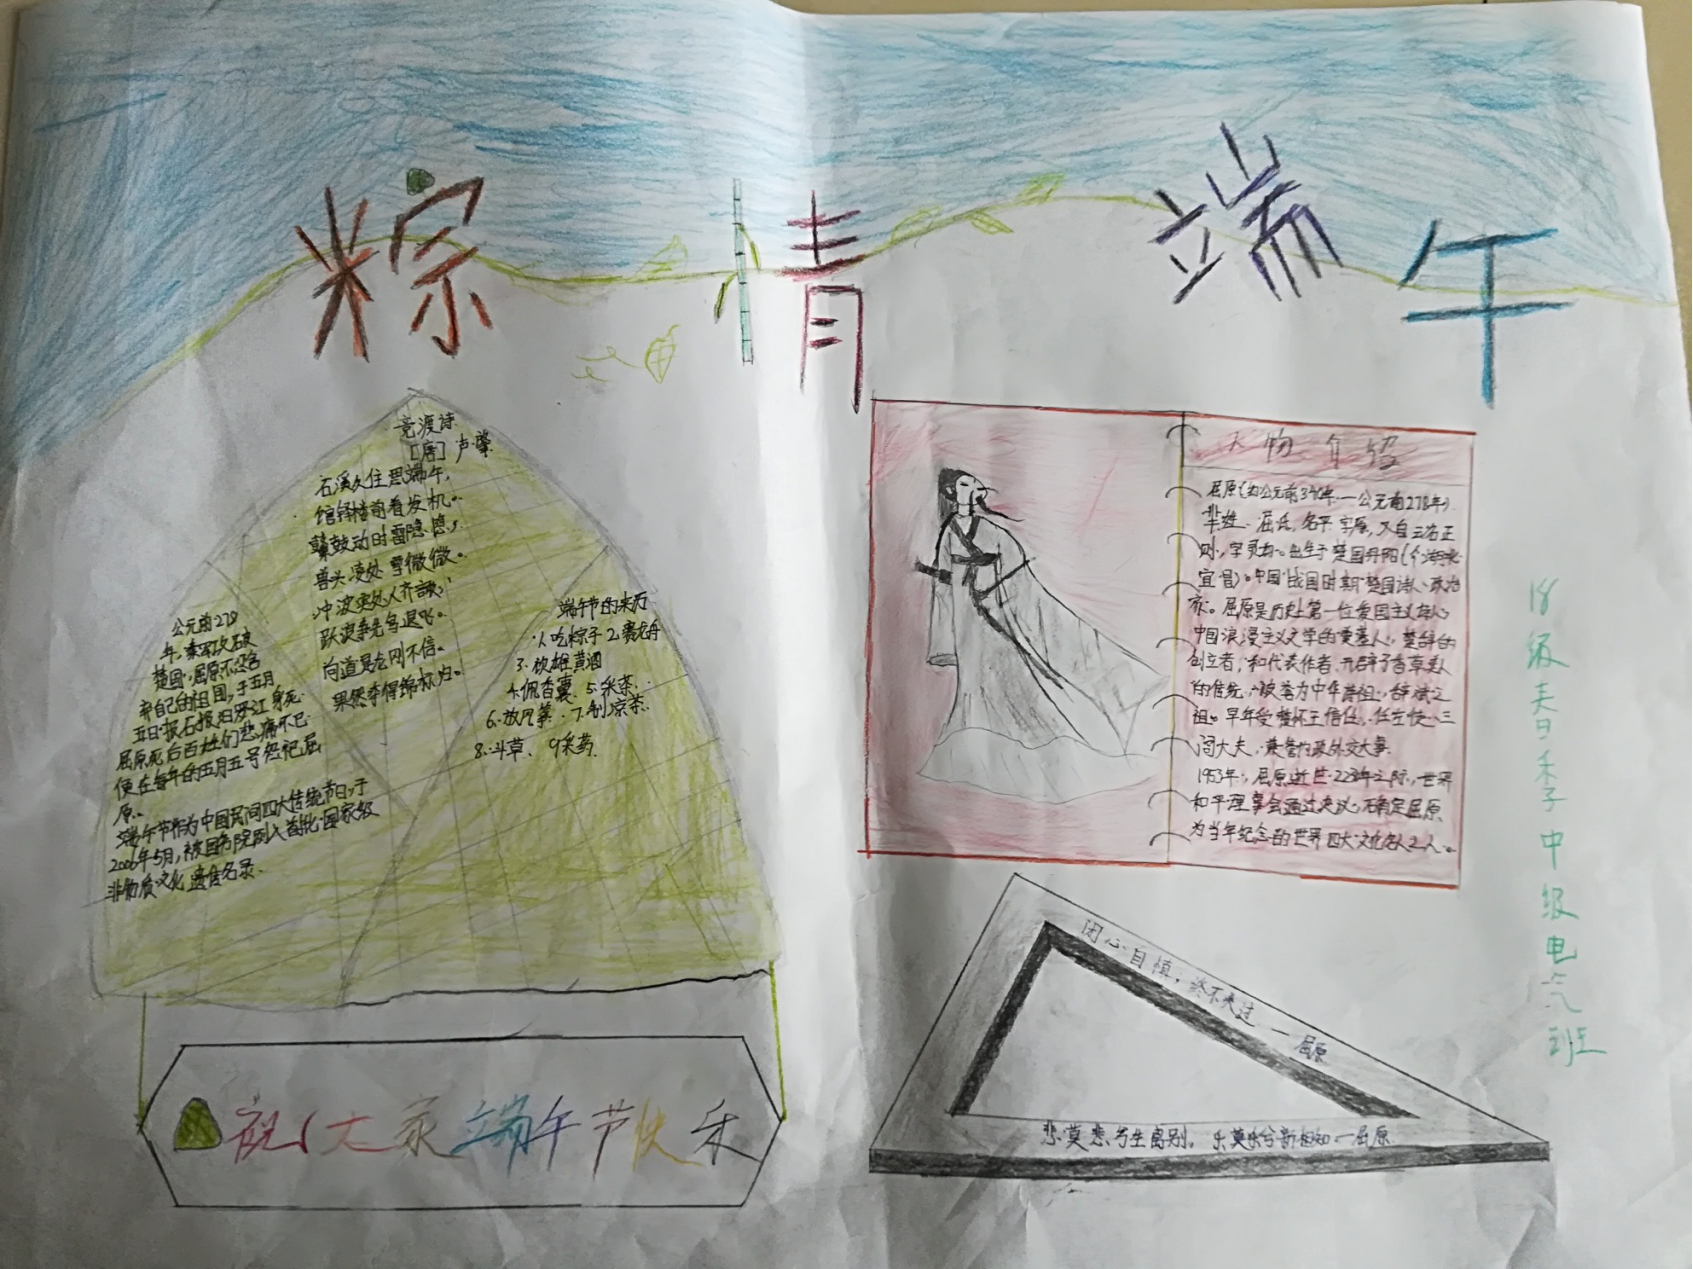 粽情端午
竞渡诗
[唐]卢肇
石溪久住思端午,
馆驿楼前看发机。
鼙鼓动时雷隐隐,
兽头凌处雪微微。
冲波突处人齐譀,
跃浪争先鸟退飞。
向道是龙刚不信。
果然夺得锦标归。
公元前278
年,秦军攻破
楚国,屈原不忍舍
弃自己的祖国,于五月
五日,抱石投汨罗江身死
屈原死后百姓们悲痛不已
便在每年的五月五号祭祀屈
原。
端午节作为中国民间四大传统节日,于
2006年5月,被国务院列入首批国家级
非物质文化遗产名录.
端午节的来历
1.吃粽子 2.赛龙舟
3.饮雄黄酒
4.佩香囊、5.采茶、
6.放风筝、7.制凉茶、
8.斗草、9采药.
祝大家端午节快乐
人物介绍
屈原(约公元前340年—公元前278年)
芈姓、屈氏,名平,字原,又自云名正
则,字灵均。出生于楚国丹阳(今湖北
宜昌)。中国战国时期楚国诗人、政治
家。屈原是历史上第一位爱国主义诗人,
中国浪漫主义文学的奠基人,楚辞的
创立者,和代表作者,开启了香草美人
的传统,被誉为中华诗祖,辞赋之
祖。早年受楚怀王信任,任左徒、三
闾大夫,兼管内政外交大事.
1953年,屈原逝世2230年之际,世界
和平理事会通过决议,确定屈原
为当年纪念的世界四大文化名人之一。
闭心自慎,终不失过 — 屈原
悲莫悲兮生离别。乐莫乐兮新相知 — 屈原
18级春季中级电气班